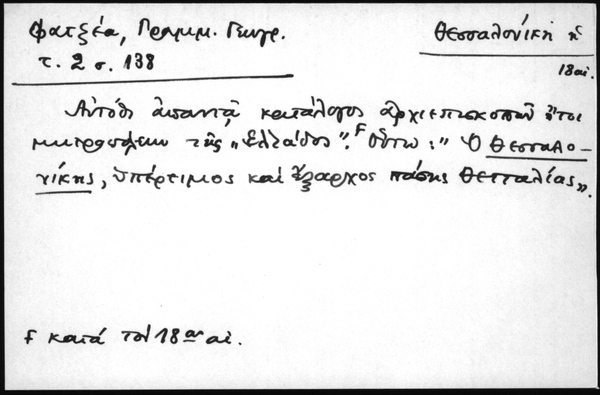 Φατζέα, Γραμμ. Γεωγρ.
τ. 2 σ. 138
Θεσσαλονίκη ἡ
18 αἰ.
Αὐτόθι ἀπαντᾷ κατάλογος ἀρχιεπισκοπῶν ἤτοι
μητροπόλεων τῆς „Ἑλλάδος". ϝ Οὕτω: " Ὁ Θεσσαλο-
νίκης, ὑπέρτιμος καὶ ἔξαρχος πάσης Θετταλίας".
ϝ κατὰ τὸν 18ον αἰ.